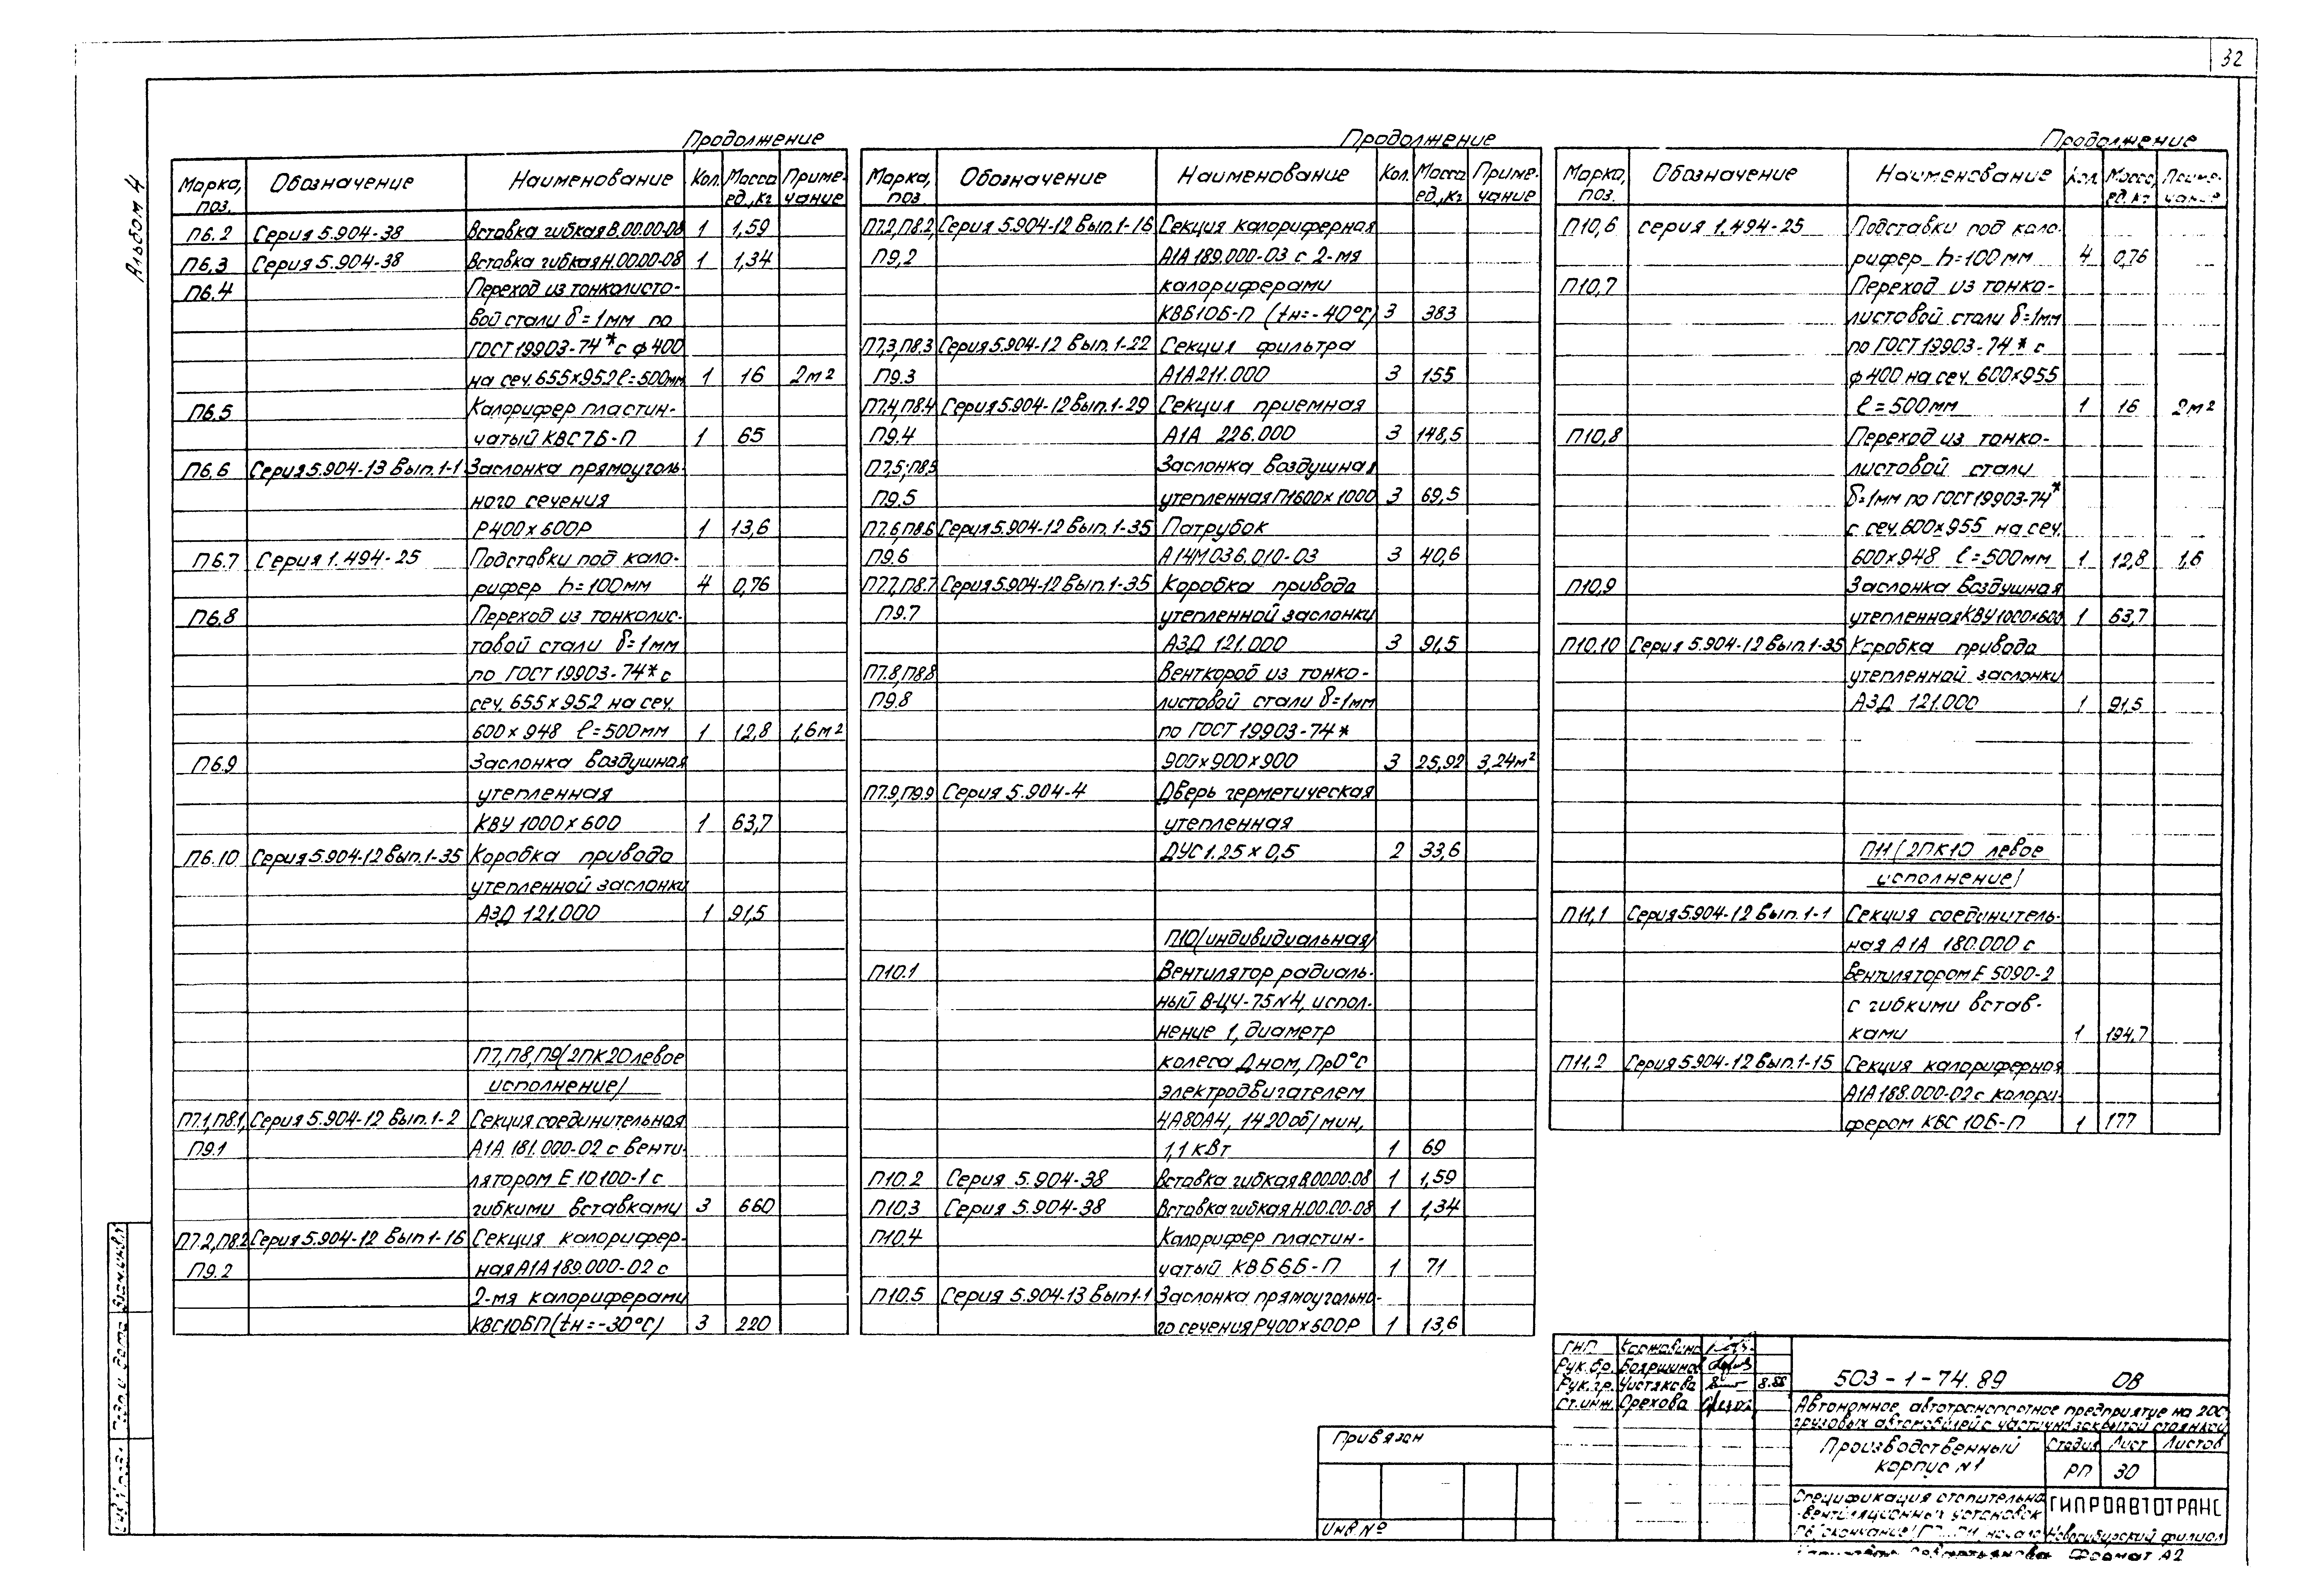 32
Альбом 4
Продолжение
Марка, поз. Обозначение Наименование Кол. Масса ед.,кг Приме-чание
П6.2 Серия 5.904-38 Вставка гибкая В.00.00-08 1 1,59
П6.3 Серия 5.904-38 Вставка гибкая Н.00.00-08 1 1,34
П6.4 Переход из тонколисто-
вой стали δ=1мм по
ГОСТ 19903-74* с ф400
на сеч. 655х952 ℓ=500мм 1 16 2м²
П6.5 Калорифер пластин-
чатый КВС7Б-П 1 65
П6.6 Серия 5.904-13 Вып.1-1 Заслонка прямоуголь-
ного сечения
Р400х600Р 1 13,6
П6.7 Серия 1.494-25 Подставки под кало-
рифер h=100мм 4 0,76
П6.8 Переход из тонколис-
товой стали δ=1мм
по ГОСТ 19903-74* с
сеч. 655х952 на сеч.
600х948 ℓ=500мм 1 12,8 1,6м²
П6.9 Заслонка воздушная
утепленная
КВУ 1000х600 1 63,7
П6.10 Серия 5.904-12 Вып.1-35 Коробка привода
утепленной заслонки
АЗД 121.000 1 91,5
П7,П8,П9/2ПК20 левое
исполнение/
П7.1,П8.1, Серия 5.904-12 Вып.1-2 Секция соединительная
П9.1 А1А 181.000-02 с венти-
лятором Е10100-1 с
гибкими вставками 3 660
П7.2,П8.2 Серия 5.904-12 Вып1-16 Секция калорифер-
П9.2 ная А1А 189.000-02 с
2-мя калориферами
КВС10БП (tн=-30°С) 3 220
Продолжение
Марка, поз. Обозначение Наименование Кол. Масса ед.,кг Приме-чание
П7.2,П8.2, Серия 5.904-12 Вып.1-16 Секция калориферная
П9.2 А1А 189.000-03 с 2-мя
калориферами
КВБ10Б-П (tн=-40°С) 3 383
П7.3,П8.3 Серия 5.904-12 Вып.1-22 Секция фильтра
П9.3 А1А 211.000 3 155
П7.4,П8.4 Серия 5.904-12 Вып.1-29 Секция приемная
П9.4 А1А 226.000 3 148,5
П7.5;П8.5 Заслонка воздушная
П9.5 утепленная П1600х1000 3 69,5
П7.6,П8.6 Серия 5.904-12 Вып.1-35 Патрубок
П9.6 А14М036.010-03 3 40,6
П7.7,П8.7 Серия 5.904-12 Вып.1-35 Коробка привода
П9.7 утепленной заслонки
АЗД 121.000 3 91,5
П7.8,П8.8 Венткороб из тонко-
П9.8 листовой стали δ=1мм
по ГОСТ 19903-74*
900х900х900 3 25,92 3,24м²
П7.9,П9.9 Серия 5.904-4 Дверь герметическая
утепленная
ДУС1.25х0,5 2 33,6
П10/индивидуальная/
П10.1 Вентилятор радиаль-
ный В-Ц4-75 N4, испол-
нение 1, диаметр
колеса Дном, Пр0° с
электродвигателем
4А80А4, 1420 об/мин,
1,1 кВт 1 69
П10.2 Серия 5.904-38 Вставка гибкая В.00.00-08 1 1,59
П10.3 Серия 5.904-38 Вставка гибкая Н.00.00-08 1 1,34
П10.4 Калорифер пластин-
чатый КВБ6Б-П 1 71
П10.5 Серия 5.904-13 Вып1-1 Заслонка прямоугольно-
го сечения Р400х600Р 1 13,6
Продолжение
Марка, поз. Обозначение Наименование Кол. Масса, ед.кг Приме-чание
П10,6 серия 1.494-25 Подставки под кало-
рифер h=100мм 4 0,76
П10,7 Переход из тонко-
листовой стали δ=1мм
по ГОСТ 19903-74* с
ф400 на сеч. 600х955
ℓ=500мм 1 16 2м²
П10,8 Переход из тонко-
листовой стали
δ=1мм по ГОСТ 19903-74*
с сеч. 600х955 на сеч.
600х948 ℓ=500мм 1 12,8 1,6
П10,9 Заслонка воздушная
утепленная КВУ 1000х600 1 63,7
П10.10 Серия 5.904-12 Вып.1-35 Коробка привода
утепленной заслонки
АЗД 121.000 1 91,5
П11/2ПК10 левое
исполнение/
П11,1 Серия 5.904-12 Вып.1-1 Секция соединитель-
ная А1А 180.000 с
вентилятором Е 5090-2
с гибкими встав-
ками 1 194,7
П11,2 Серия 5.904-12 Вып.1-15 Секция калориферная
А1А 188.000-02 с калори-
фером КВС 10Б-П 1 177
ГИП
Рук.бр. Бояршинов
Рук.гр. Чистякова 8.88
Ст.инж. Орехова
503-1-74.89 ОВ
Автономное автотранспортное предприятие на 200
грузовых автомобилей с частично закрытой стоянкой
Производственный
корпус N1
Стадия Лист Листов
РП 30
Спецификация отопительно
-вентиляционных установок
ГИПРОАВТОТРАНС
Новосибирский филиал
Формат А2
Привязан
Инв.№